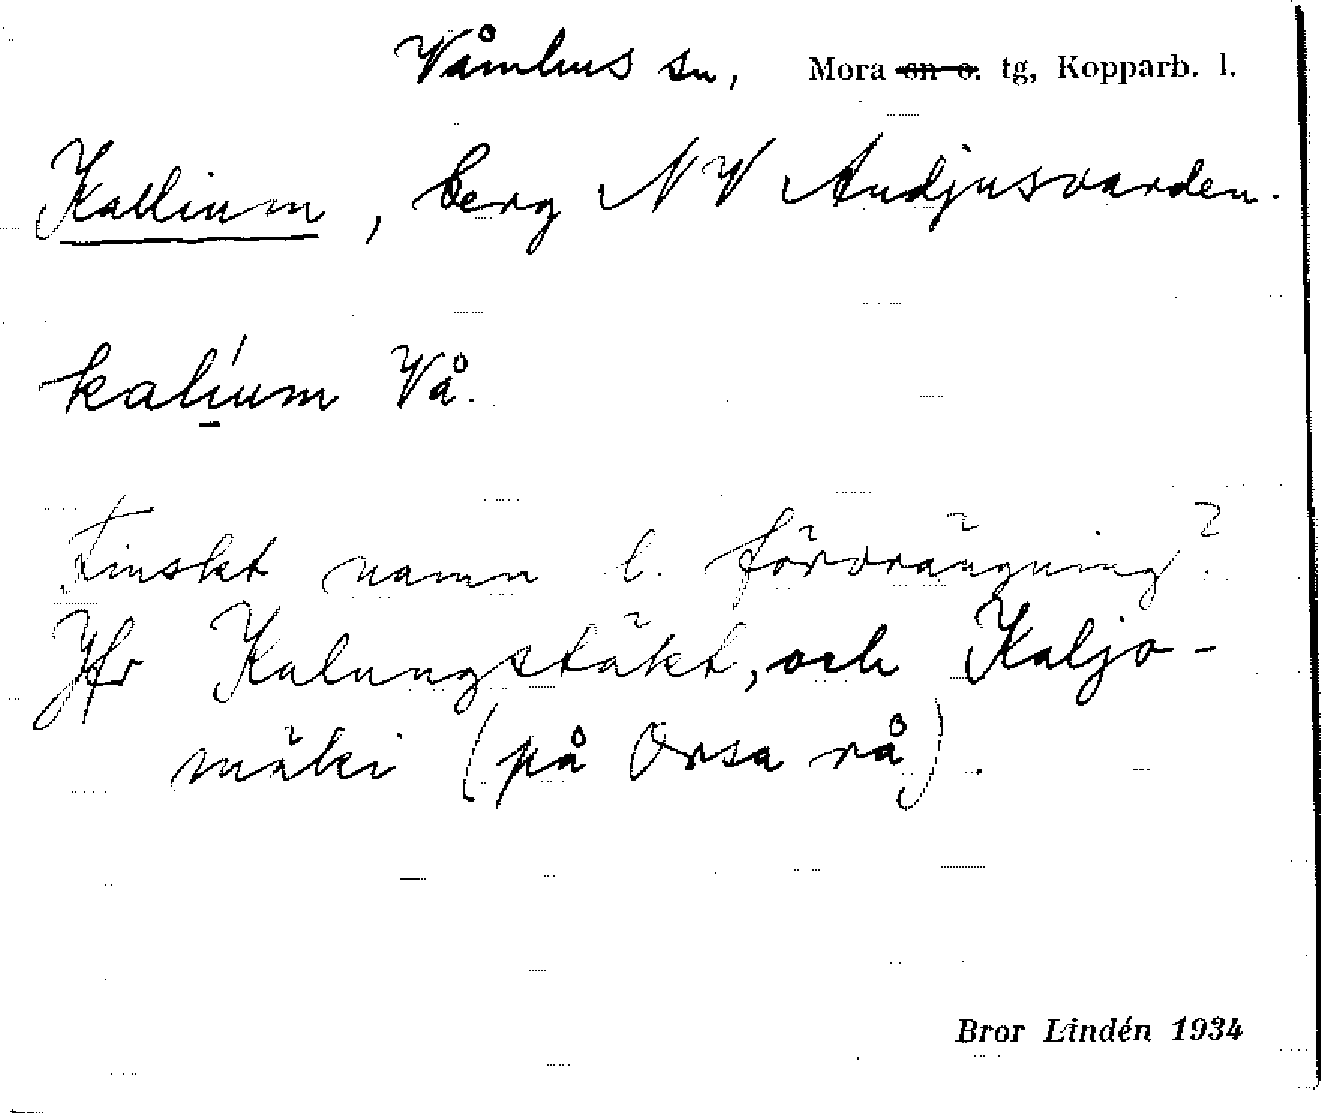 Våmhus sn, Mora sn o. tg, Kopparb. l.
Kallium, berg NV Andjusvarden.
kalium Vå.
Finskt namn l. förvrängning?
Jfr Kalungstäkt, och Kaljo-
mäki (på Orsa rå).
Bror Lindén 1934